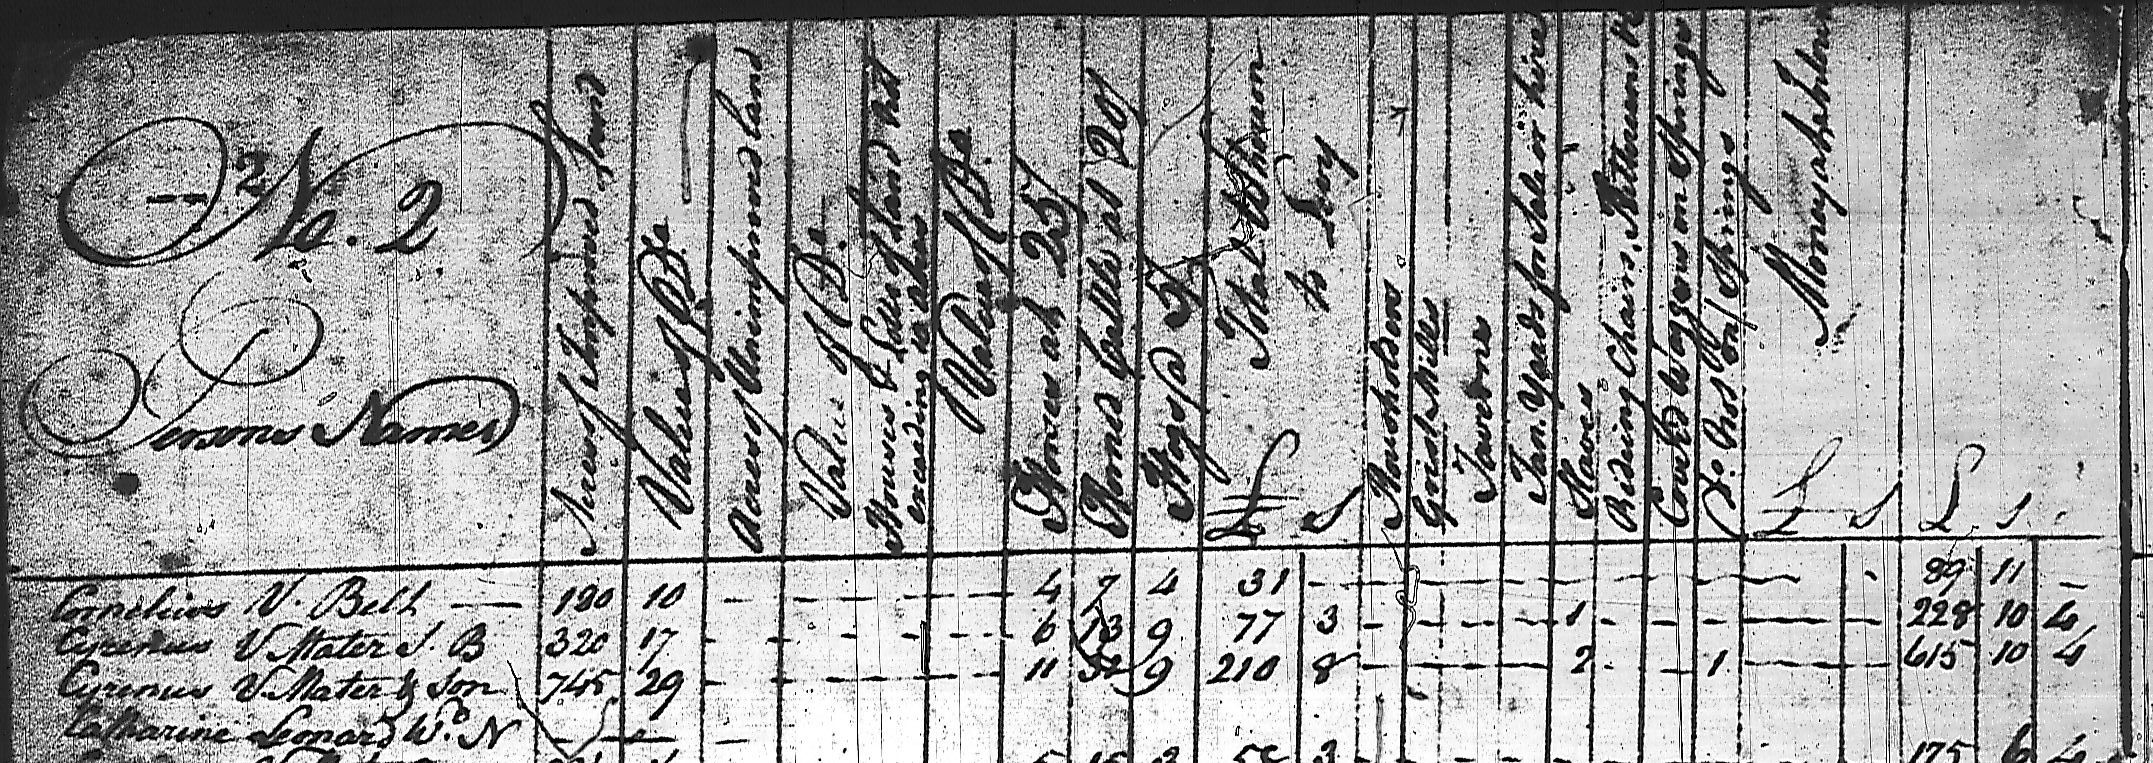 No. 2
Persons Names
Acres of Improved Land
Value of Do
Acres of Unimproved Land
Value of Do.
Houses & Lots of Land not
exceeding 10 acres
Value of Do.
Horses at 25/
Horned Cattle at 20/
Hoggs
Total
to Levy
£ S
Householders
Grist Mills
Taverns
Tan Yards for Sale or hire
Slaves
Riding Chairs, Kittureens &
Cover'd Waggons on Springs
Do. Do. not on Springs
£ S
£ S
Cornelius V. Belt — 180 10 - - - - 4 7 4 31 - - - - - - - - - - - 89 11 -
Cyrenus V Mater S. B 320 17 - - - - 6 13 9 77 3 - - - - 1 - - - - - 228 10 4
Cyrenus V Mater & Son 745 29 - - - - 11 32 9 210 8 - - - - 2 - - 1 - - 615 10 4
Catharine Leonard Wd. N - - -
3 175 6 4